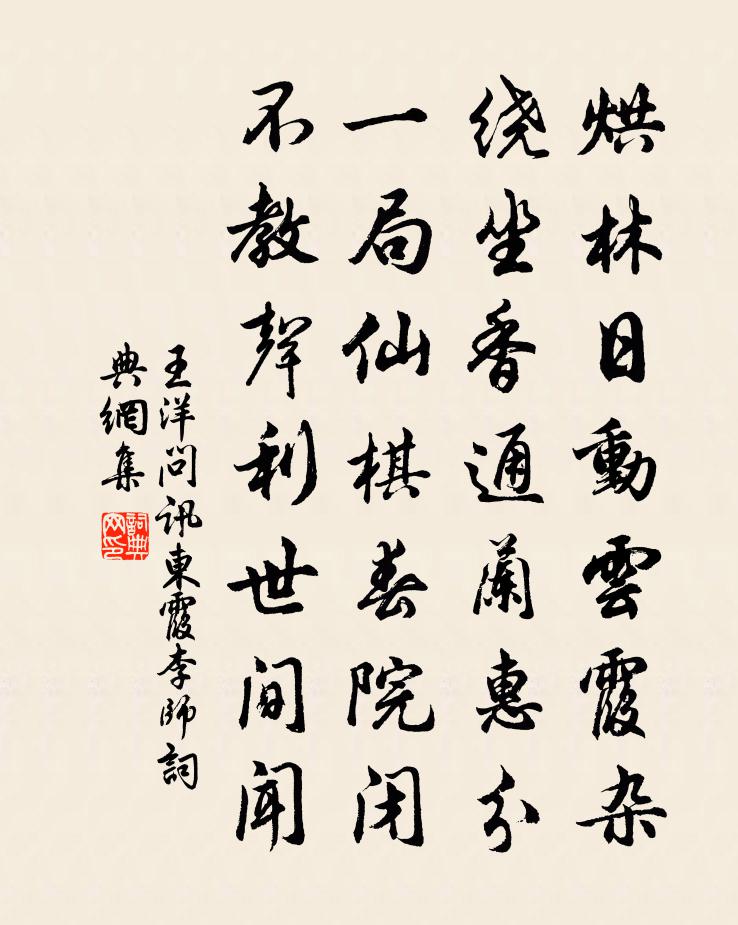 烘林日動雲霞杂
绕坐香通蘭惠分
一局仙棋春院闭
不教聲利世间闻
王洋问讯東霞李師詞
典網集
詞典网印